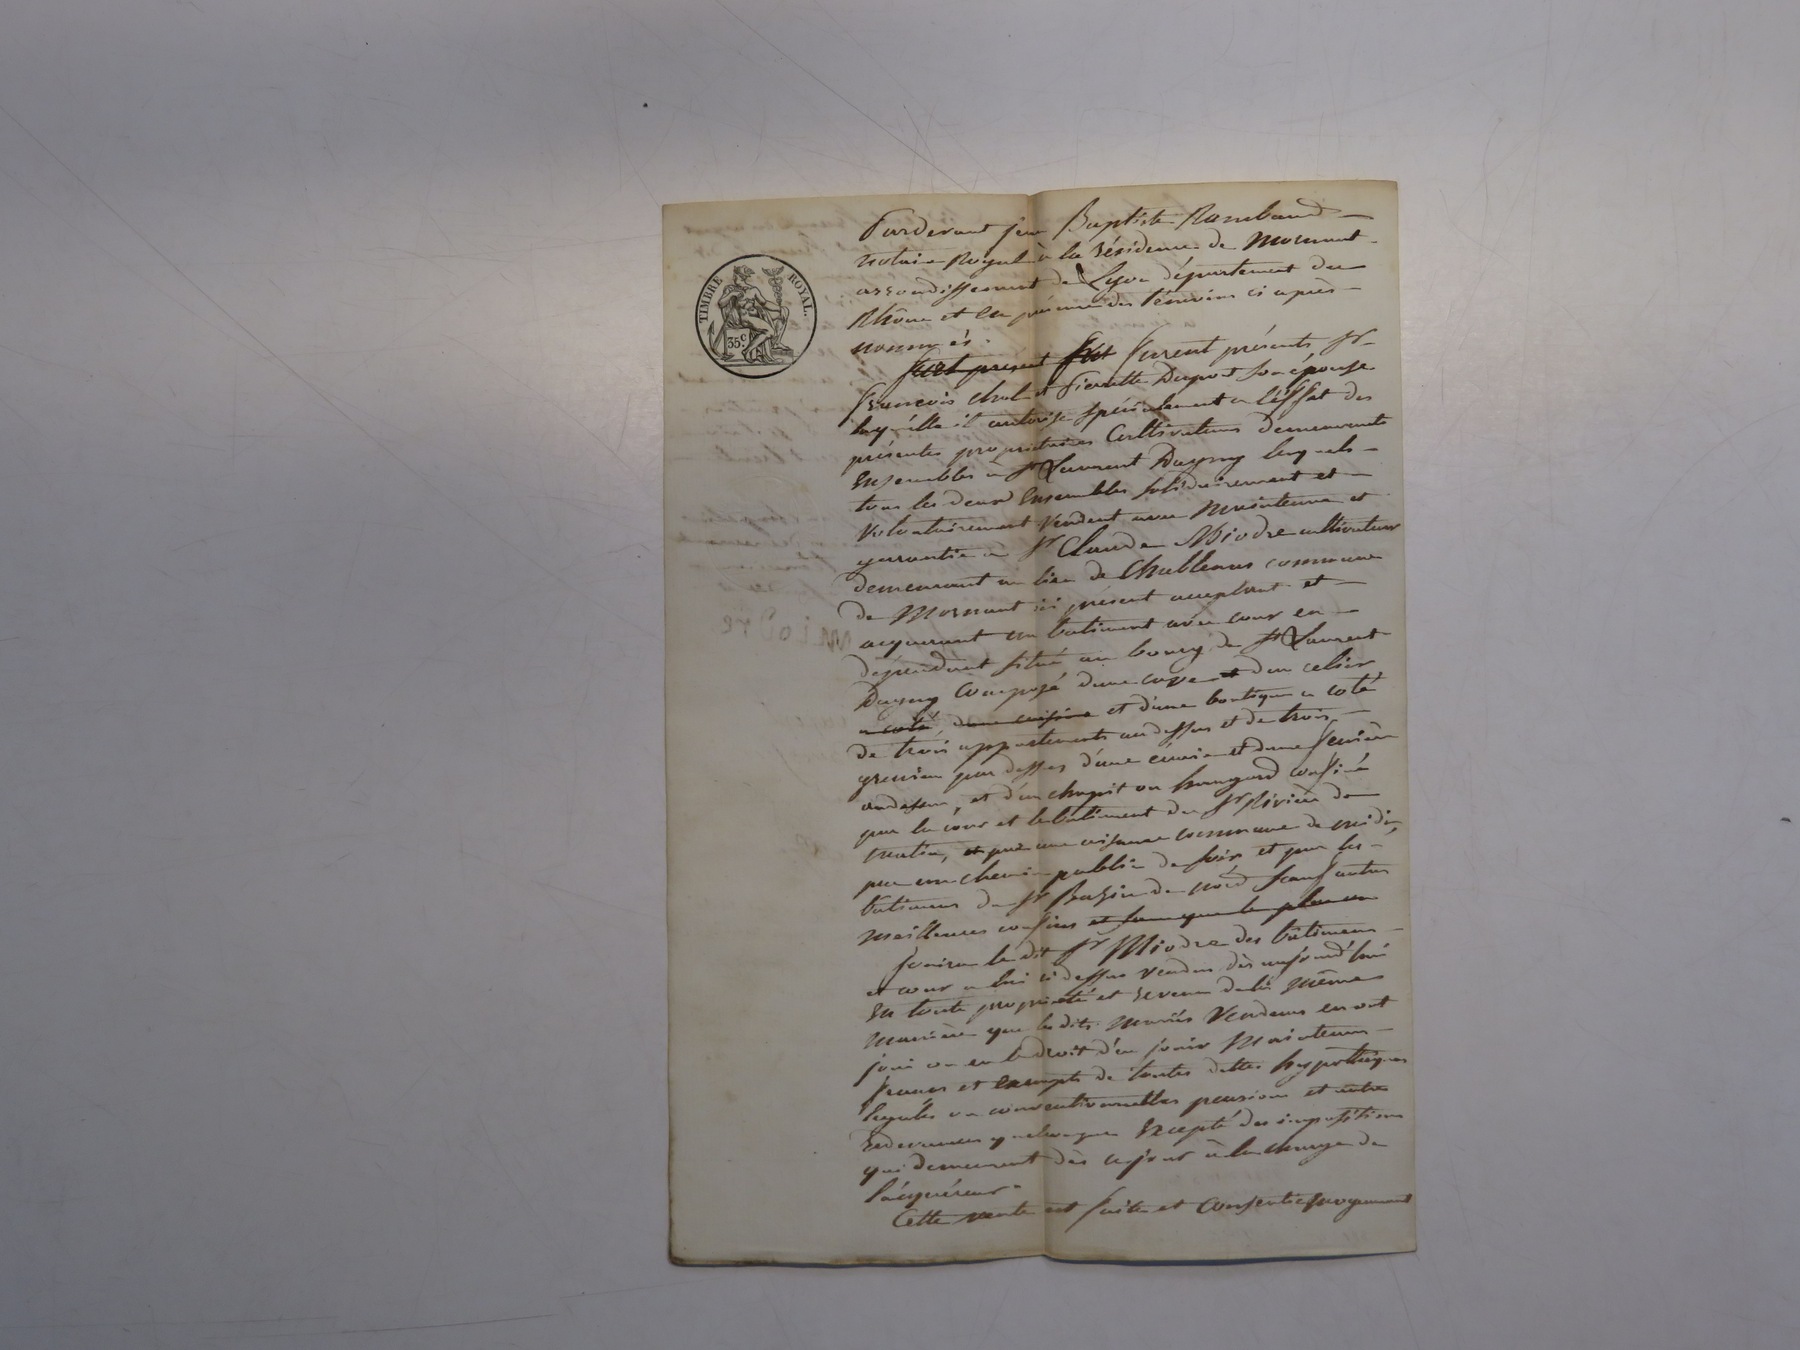 TIMBRE ROYAL.
35c.
Pardevant jean Baptiste Rambaud
notaire Royal à la résidence de Mornant
arrondissement de Lyon département du
Rhône et en présence des témoins ci après
nommés.
Sont présent fut furent présents Sr
françois chol et Pierrette Dupont son épouse
qu'elle il autorise spécialement a l'effet des
présentes propriétaires Cultivateurs demeurants
Ensembles à St Laurent Dagny lesquels
tous les deux Ensembles solidairement et
volontairement vendent avec maintenue et
garantie a Sr Claude Miodre cultivateur
demeurant au lieu de Chablenas commune
de Mornant ici présent acceptant et
acquerant un batiment avec cour en
dépendant situé au bourg de St Laurent
Dagny composé d'une cave et d'un celier
a coté, d'une cuisine et d'une boutique a coté
de trois appartements au dessus et de trois
greniers par dessus d'une écurie et d'une feniere
au dessus, et d'un chapit ou hangard confiné
par la cour et le batiment du Sr Rivière de
matin, et par une aisance commune de midi,
par un chemin public de soir et par les
batimens du Sr Bazin de nord sauf autres
meilleures confins et tout que le plan en
jouira le dit Sr Miodre des bâtimens
et cour a lui ci dessus vendus dès aujourd'hui
En toute propriété et revenu de la même
manière que les dits mariés Vendeurs en ont
joui ou eu le droit d'en jouir Maintenus
francs et exempts de toutes dettes hypothèques
légales ou conventionnelles pensions et autres
redevances quelconques Excepté des impositions
qui demeurent dès ce jour à la charge de
l'acquéreur.
Cette vente est faite et Consentie moyennant
miodre